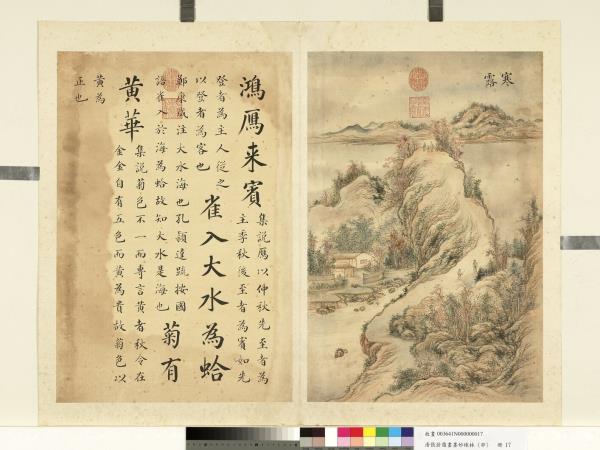 寒露
鴻鴈来賓
集說鴈以仲秋先至者為
主季秋後至者為賓如先
登者為主人從之
以登者為客也
雀入大水為蛤
鄭康成注大水海也孔穎達疏按國
語雀入於海為蛤故知大水是海也
菊有
黄華
集說菊色不一而專言黄者秋令在
金金自有五色而黄為貴故菊色以
黄為
正也
故畫 003641N000000017
清張若靄畫墨妙珠林（卯） 冊 17